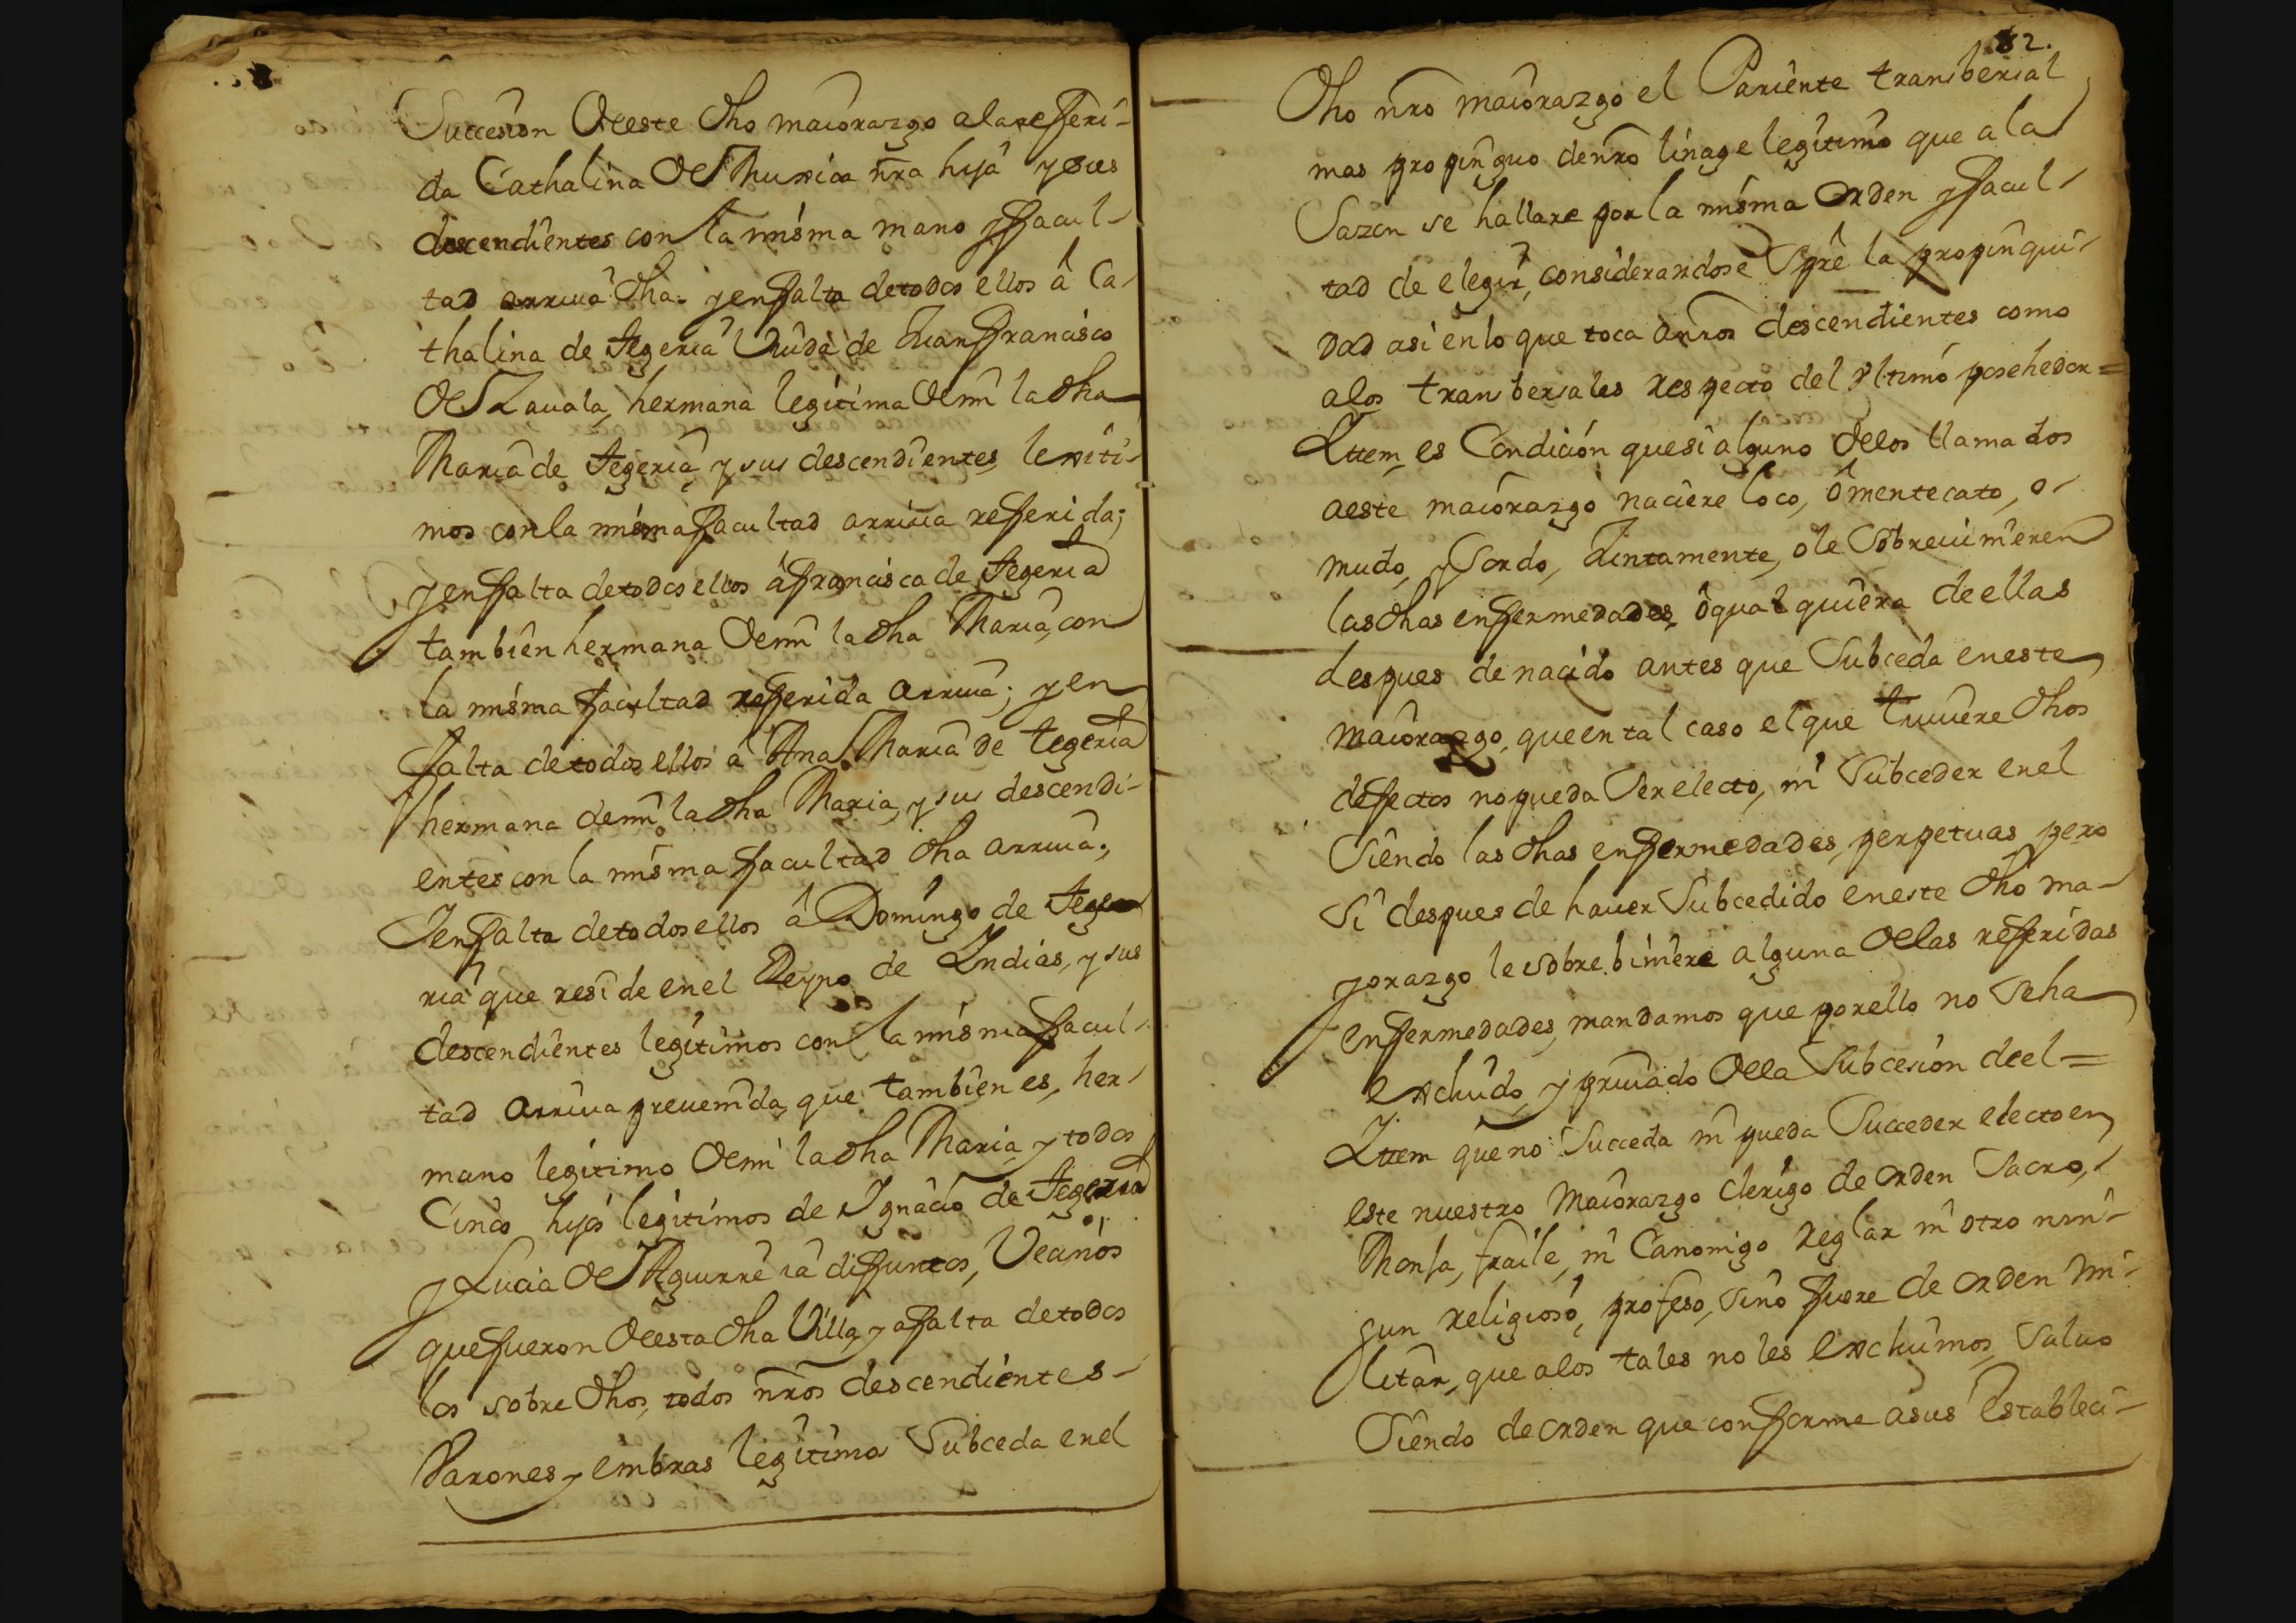 Succesion de este dho maiorazgo a la refferi-
da Cathalina de Munica nra hija y sus
descendientes con la misma mano y ffacul-
tad arriua dha. y en ffalta de todos ellos â Ca-
thalina de Tegeria Viuda de Juan Francisco
de Zauala, hermana legitima de mi la dha
Maria de Tegeria y sus descendientes, lexiti-
mos con la misma ffacultad arriua refferida;
y en ffalta de todos ellos â francisca de Tegeria
tambien hermana de mi la dha Maria, con
la misma facultad refferida arriua; y en
ffalta de todos ellos a Ana Maria de Tegeria
hermana de mi la dha Maria, y sus descendi-
entes con la misma facultad dha arriua;
Y en ffalta de todos ellos â Domingo de Tege-
ria que reside en el Reyno de Indias, y sus
descendientes legitimos con la misma ffacul-
tad arriua preuenida, que tambien es, her-
mano legitimo de mi la dha Maria, y todos
Cinco hijos legitimos de Ygnacio de Tegeria
y Lucia de Aguirre ia diffuntos, Vecinos
que fueron de esta dha Villa, y a ffalta de todos
los sobre dhos, todos nros descendientes-
Varones y embras legitimos Subceda en el
82.
Dho nro maiorazgo el Pariente transbersal
mas propinquo de nro linage legitimo que a la
Sazon se hallare por la misma orden y ffacul-
tad de elegir, considerandose Spre la propinqui-
dad asi en lo que toca a nros descendientes como
a los transbersales respecto del vltimo posehedor=
Ittem, es Condición que si alguno de los llamados
a este maiorazgo naciere loco, ô mentecato, o-
mudo, y Sordo, Juntamente, o le Sobreuinieren
las dhas enffermedades, ô qual quiera de ellas
despues de nacido antes que Subceda en este
maiorazgo, que en tal caso el que tuuiere dhos
deffectos no pueda Ser electo, ni Subceder en el
Siendo las dhas enffermedades, perpetuas, pero
Si despues de hauer Subcedido en este dho ma-
yorazgo le sobre biniere alguna de las refferidas
enffermedades, mandamos que por ello no Seha
excluido, y priuado de la Subcesión de el=
Ittem que no Succeda ni pueda Succeder electo en
este nuestro Maiorazgo clerigo de orden Sacro,
Monja, fraile, ni Canonigo reglar ni otro nin-
gun religioso, profeso, Sino fuere de orden Mi-
litar, que a los tales no les excluimos, Saluo
Siendo de orden que confforme a sus Estableci-